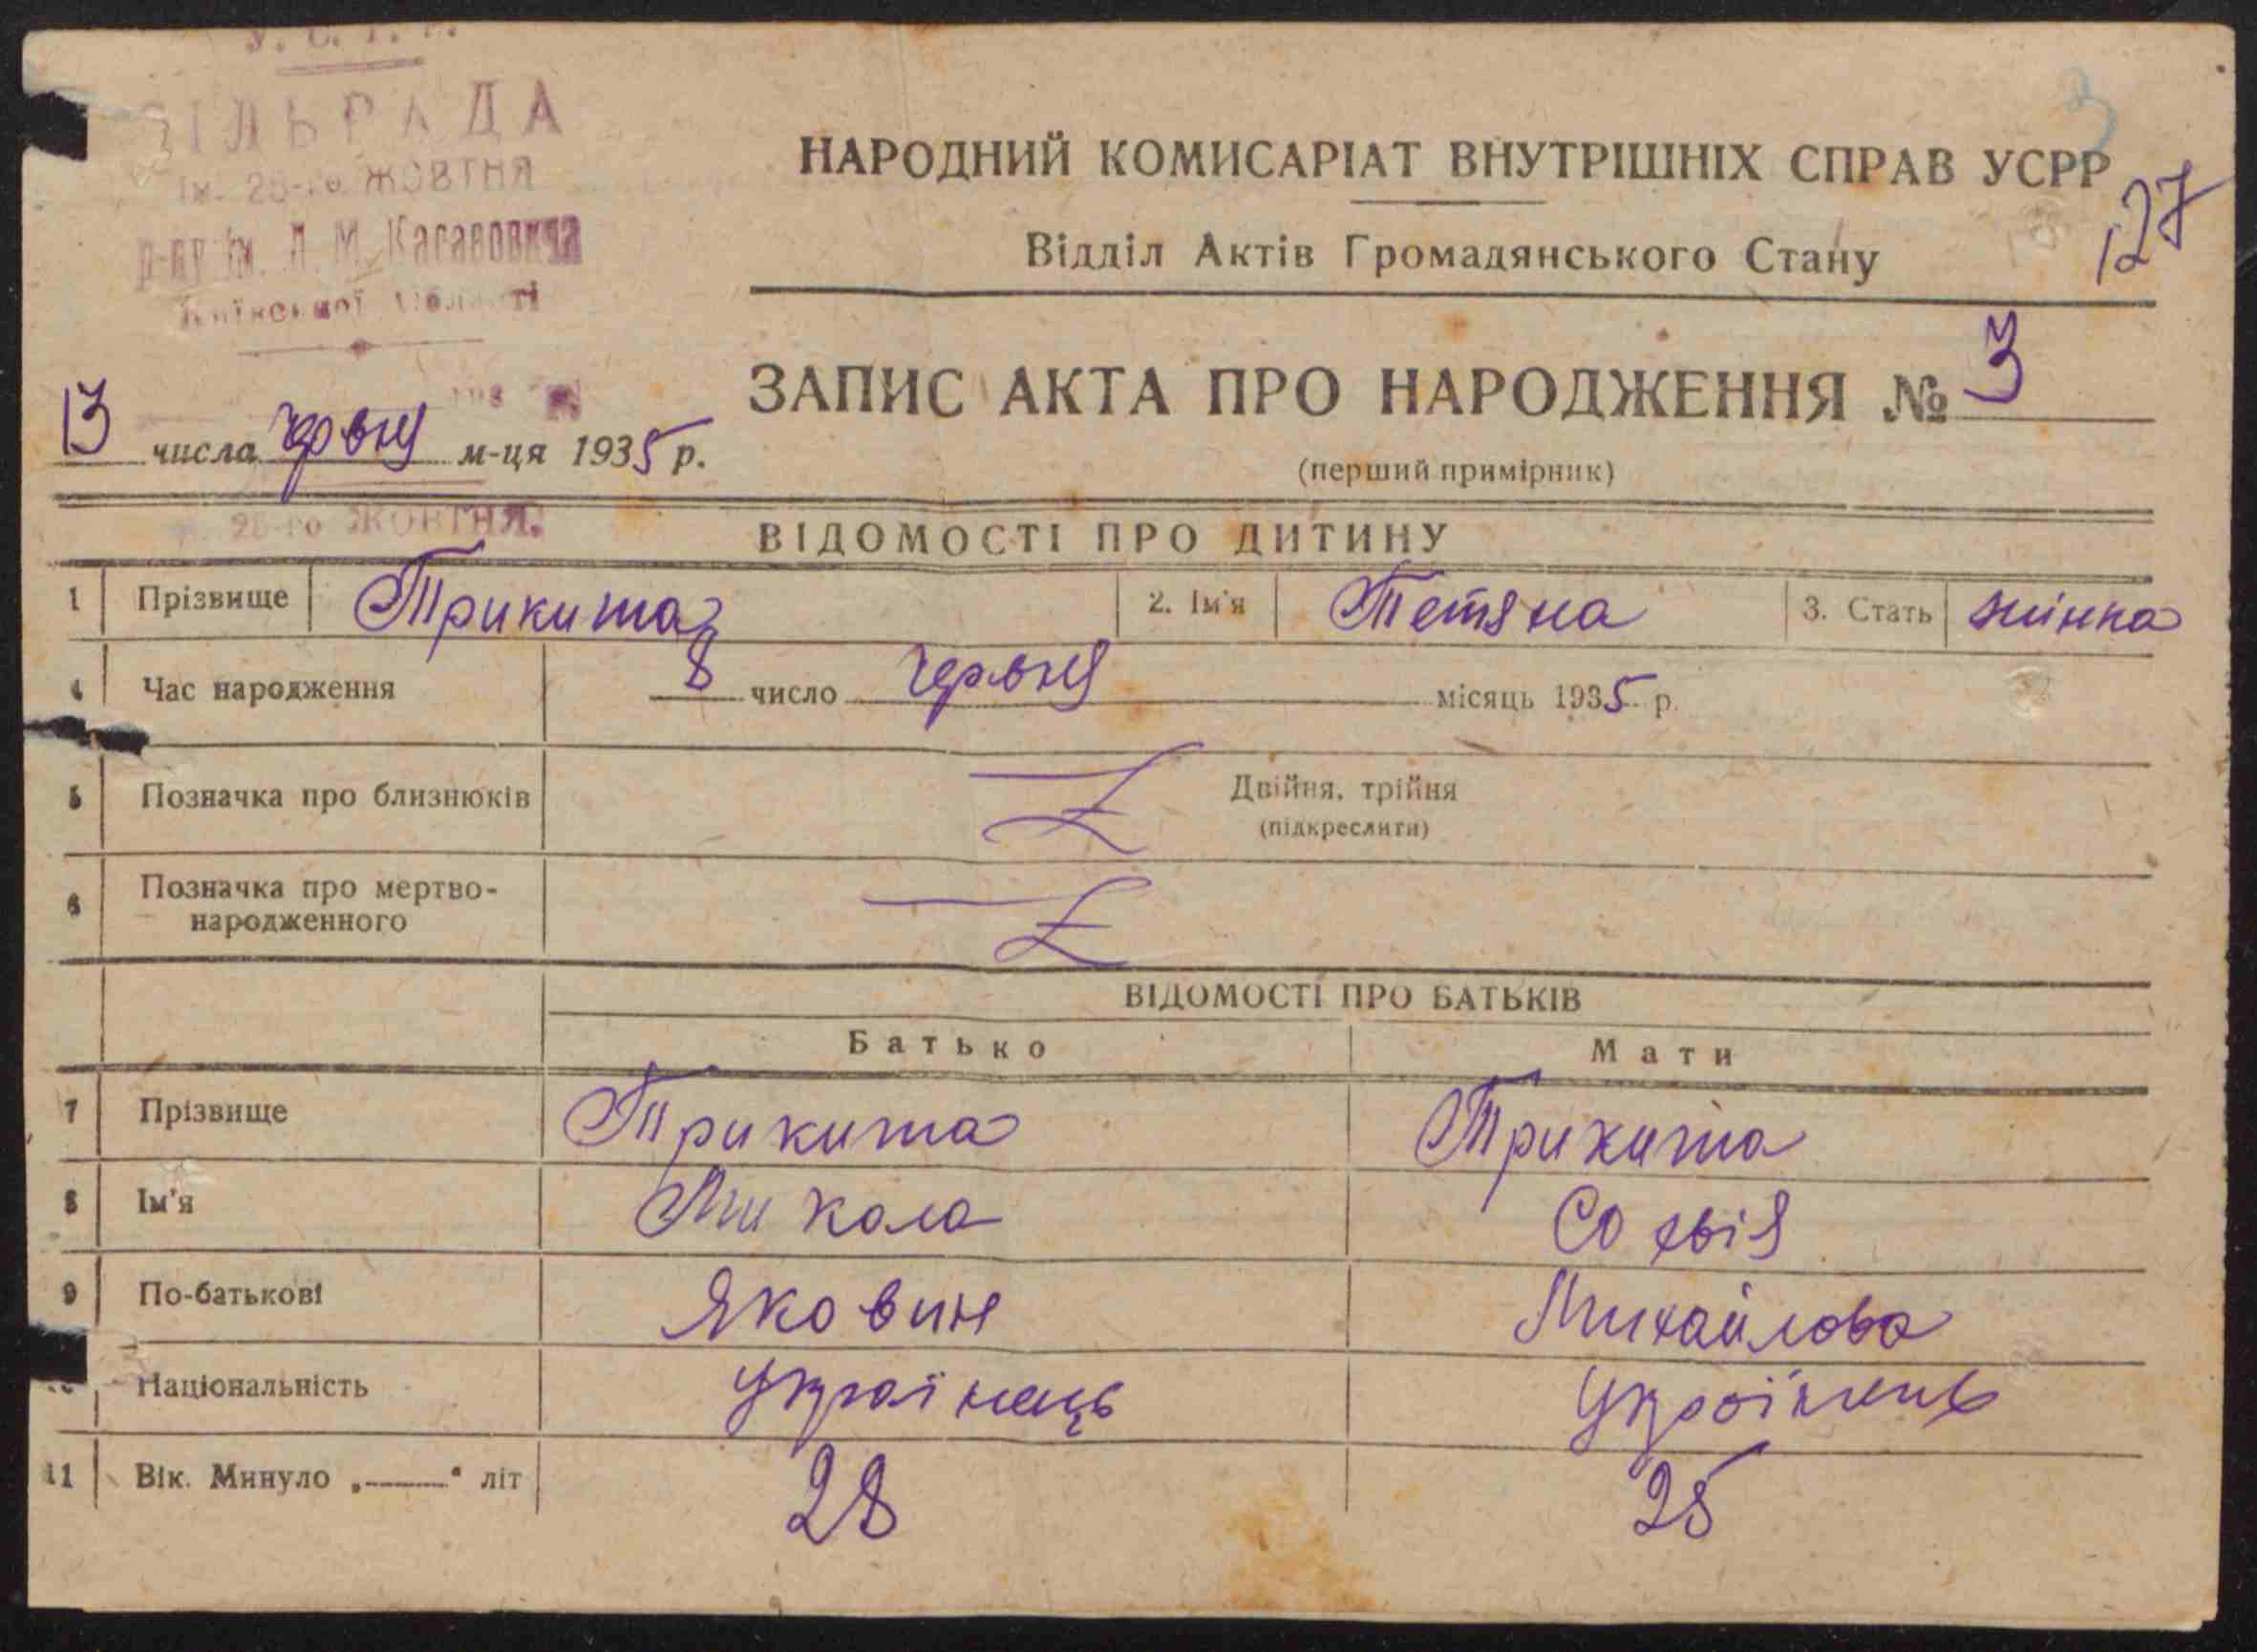 У. С. Р. Р.
СІЛЬРАДА
ім. 25-го ЖОВТНЯ
р-ну ім. Л. М. Кагановича
Київської Області
НАРОДНИЙ КОМИСАРІАТ ВНУТРІШНІХ СПРАВ УСРР
3
127
Відділ Актів Громадянського Стану
ЗАПИС АКТА ПРО НАРОДЖЕННЯ № 3
13 числа червня м-ця 1935 р.
(перший примірник)
25-го ЖОВТНЯ.
ВІДОМОСТІ ПРО ДИТИНУ
1 Прізвище Трикита 2. Ім'я Тетяна 3. Стать жінка
4 Час народження 8 число червня місяць 1935 р.
5 Позначка про близнюків Двійня, трійня
(підкреслити)
6 Позначка про мертво-
народженного
ВІДОМОСТІ ПРО БАТЬКІВ
Батько Мати
7 Прізвище Трикита Трикита
8 Ім'я Микола Софія
9 По-батькові Яковин Михайлова
Національність Українець Українець
11 Вік. Минуло „——“ літ 28 25